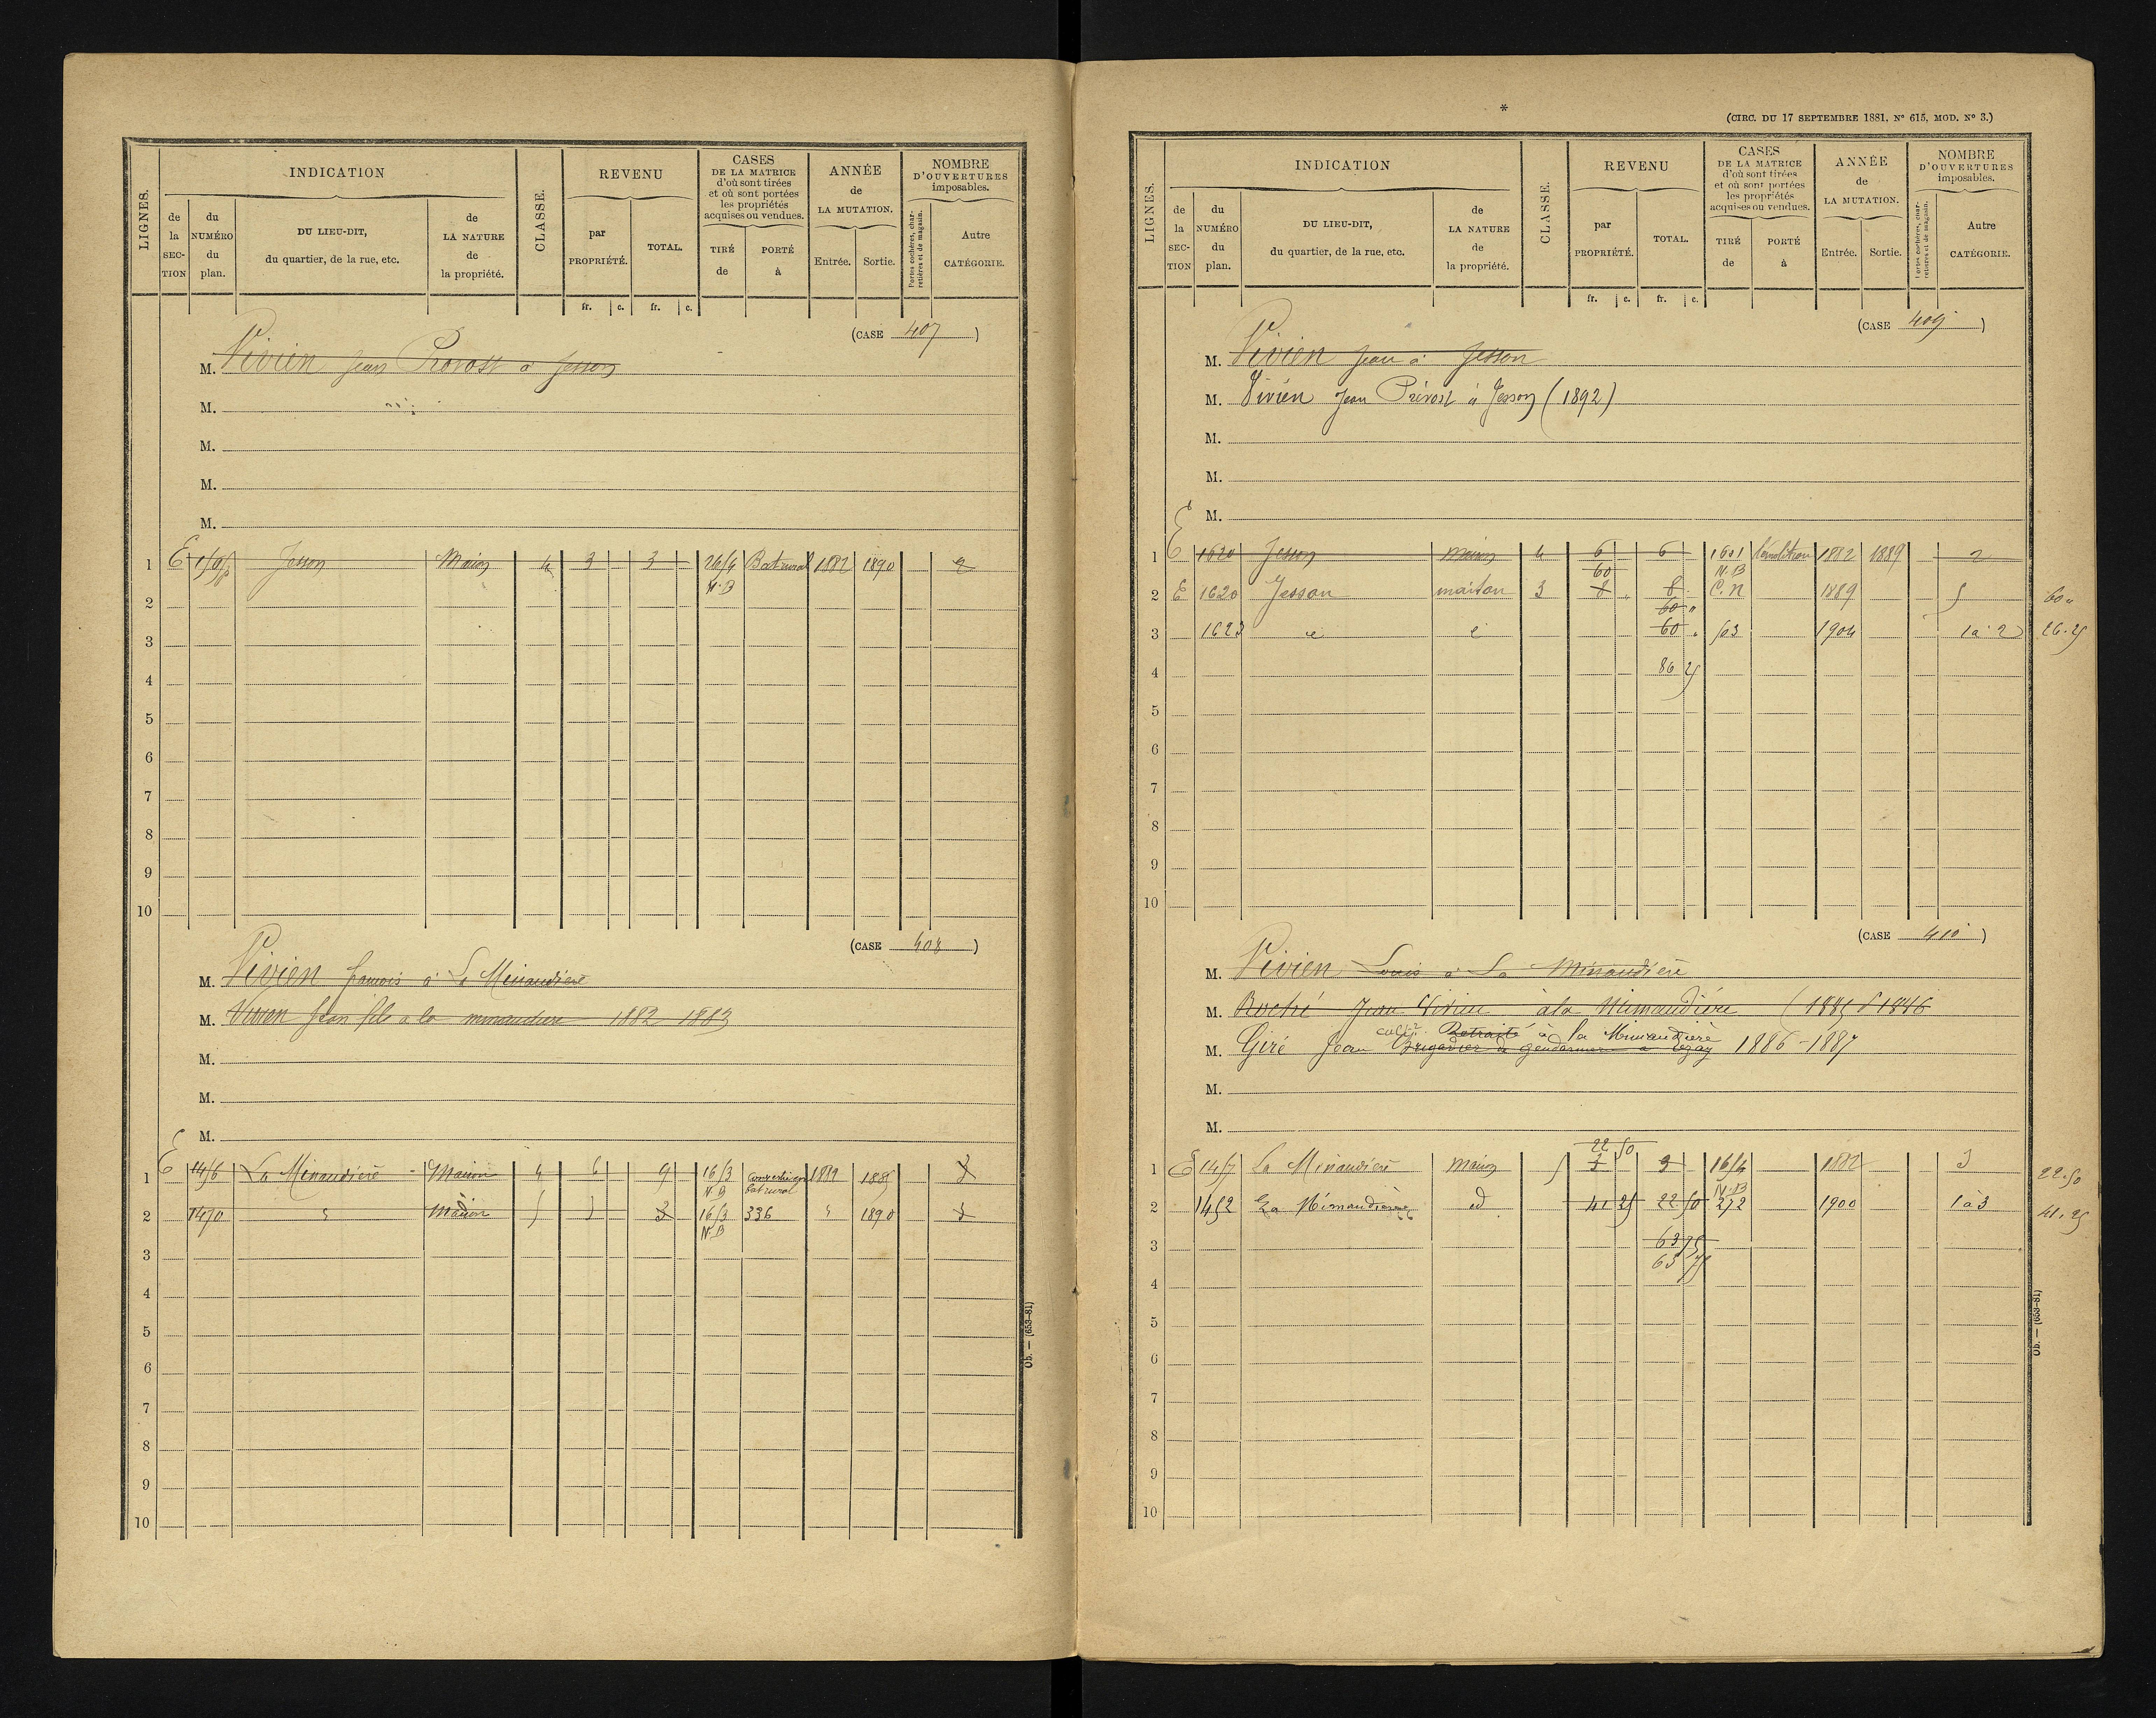 LIGNES.
INDICATION
de la SECTION
du NUMÉRO du plan.
DU LIEU-DIT, du quartier, de la rue, etc.
de LA NATURE de la propriété.
CLASSE.
REVENU
par PROPRIÉTÉ.
TOTAL.
CASES DE LA MATRICE d'où sont tirées et où sont portées les propriétés acquises ou vendues.
TIRÉ de
PORTÉ à
ANNÉE de LA MUTATION.
Entrée.
Sortie.
NOMBRE D'OUVERTURES imposables.
Portes cochères, charretières et de magasin.
Autre CATÉGORIE.
fr. c. fr. c.
(CASE 407)
M. Vivien Jean Provost à Jesson
M.
M.
M.
M.
1 E Jesson Maison 4 3 3 Bat rural 1882 1890 2
N.B
2
3
4
5
6
7
8
9
10
(CASE 408)
M. Vivien françois à La Minaudière
M. Vivien Jean fils à la minaudière 1882 1883
M.
M.
M.
1 E 1456 La Minaudière Maison 4 6 9 1653 Conversion bat rural 1882 1885 3
N.B
2 1450 Maison 5 3 3 1653 336 1890 3
N.B
3
4
5
6
7
8
9
10
Ob. — (653-81)
*
(CIRC. DU 17 SEPTEMBRE 1881. N° 615, MOD. N° 3.)
LIGNES.
INDICATION
de la SECTION
du NUMÉRO du plan.
DU LIEU-DIT, du quartier, de la rue, etc.
de LA NATURE de la propriété.
CLASSE.
REVENU
par PROPRIÉTÉ.
TOTAL.
CASES DE LA MATRICE d'où sont tirées et où sont portées les propriétés acquises ou vendues.
TIRÉ de
PORTÉ à
ANNÉE de LA MUTATION.
Entrée.
Sortie.
NOMBRE D'OUVERTURES imposables.
Portes cochères, charretières et de magasin.
Autre CATÉGORIE.
fr. c. fr. c.
(CASE 409)
M. Vivien Jean à Jesson
M. Vivien Jean Prévost à Jesson (1892)
M.
M.
M.
1 E 1620 Jesson maison 4 6 6 1601 démolition 1882 1889 2
60 N.B
2 E 1620 Jesson maison 3 8 8 C.N 1889 5 60 "
60 "
3 1623 60 " 503 1904 1 à 2 26.25
4 86 25
5
6
7
8
9
10
(CASE 410)
M. Vivien Louis à La Minaudière
M. Roché Jean Vivien à la Minaudière (1885 & 1886
cult.r Retraité à la Minaudière
M. Giré Jean Brigadier de gendarmerie à Lezay 1886-1887
M.
M.
22 50
1 E 1457 La Minaudière Maison 5 3 3 1654 1882 3 22.50
N.B
2 1452 La Minaudière id 41 25 22 50 272 1900 1 à 3 41.25
3 63 75
63 75
4
5
6
7
8
9
10
Ob. — (653-81)